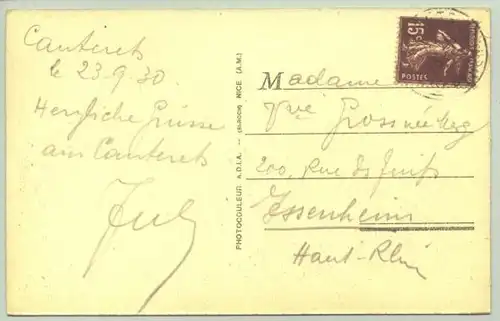 Cauterets
le 23-9-30
Herzliche Grüsse
aus Cauterets
PHOTOCOULEUR A.D.I.A. — NICE (A.M.)
15c
POSTES
Madame
Vve
200, Rue des Juifs
Issenheim
Haut-Rhin